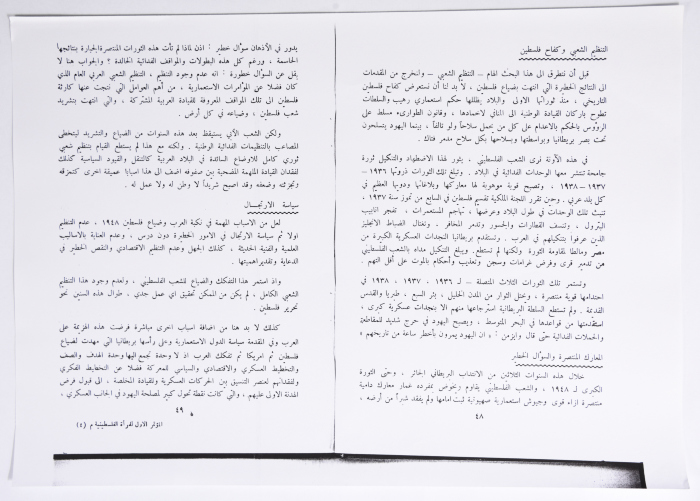 التنظيم الشعبي وكفاح فلسطين
قبل أن نتطرق الى هذا البحث الهام ــ التنظيم الشعبي ــ ولنخرج من المقدمات
الى النتائج الخطيرة التي انتهت بضياع فلسطين ، لا بد لنا أن نستعرض كفاح فلسطين
التاريخي ، منذ ثوراتها الاولى والبلاد يظللها حكم استعماري رهيب والسلطات
تطوح بأركان القيادة الوطنية الى المنافي لاخمادها ، وقانون الطوارىء مسلط على
الرؤوس بالحكم بالاعدام على كل من يحمل سلاحاً ولو تالفاً ، بينما اليهود يتسلحون
تحت بصر بريطانيا وبواسطتها وبسلاحها بكل سلاح مدمر فتاك .
في هذه الآونة نرى الشعب الفلسطيني ، يثور لهذا الاضطهاد والتنكيل ثورة
جامحة تنتشر معها الوحدات الفدائية في البلاد . وتبلغ تلك الثورات ذروتها ١٩٣٦ــ
١٩٣٧ ــ ١٩٣٨ ، وتصبح قوية موهوبة لها معاركها وبلاغاتها ودويها العظيم في
كل بلد عربي . وحين تقرر اللجنة الملكية تقسيم فلسطين في السابع من تموز سنة ١٩٣٧ ،
تنبث تلك الوحدات في طول البلاد وعرضها ، تهاجم المستعمرات ، تفجر انابيب
البترول ، وتنسف القطارات والجسور وتدمر المخافر . وتغتال الضباط الانجليز
الذين عرفوا بتنكيلهم في العرب . وتستقدم بريطانيا النجدات العسكرية الكبيرة من
مصر ومالطا لمقاومة الثورة ولكنها لم تستطع. ويبلغ التنكيل مداه بالشعب الفلسطيني
من تدمير قرى وفرض غرامات وسجن وتعذيب وأحكام بالموت على أقل التهم .
وتستمر تلك الثورات الثلاث المتصلة ــ لـ ١٩٣٦ ، ١٩٣٧ ، ١٩٣٨ في
احتدامها قوية منتصرة ، وتحتل الثوار من المدن الخليل ، بئر السبع ، طبريا والقدس
القديمة . ولم تستطع السلطة البريطانية استرجاعها منهم الا بنجدات عسكرية كبرى ،
استقدمتها من قواعدها في البحر المتوسط ، ويصبح اليهود في حرج شديد للمقاطعة
والحملات الفدائية حتى قال وايزمن : « ان اليهود يمرون بأخطر ساعة من تاريخهم »
المعارك المنتصرة والسؤال الخطير
خلال هذه السنوات الثلاثين من الانتداب البريطاني الجائر ، وحتى الثورة
الكبرى لـ ١٩٤٨ ، والشعب الفلسطيني يقاوم ويخوض بمفرده غمار معارك دامية
منتصرة ازاء قوى وجيوش استعمارية صهيونية ثبت امامها ولم يفقد شبراً من أرضه ،
٤٨
يدور في الأذهان سؤال خطير : اذن لماذا لم تأت هذه الثورات المنتصرة الجبارة بنتائجها
الحاسمة ، ورغم كل هذه البطولات والمواقف الفدائية الخالدة ؟ والجواب هنا لا
يقل عن السؤال خطورة : انه عدم وجود التنظيم ، التنظيم الشعبي العربي العام الذي
كان فضلا عن المؤامرات الاستعمارية ، من أهم العوامل التي نتجت عنها كارثة
فلسطين الى تلك المواقف المعروفة للقيادة العربية المشتركة ، والتي انتهت بتشريد
شعب فلسطين ، وضياعه في كل أرض .
ولكن الشعب الآي يستيقظ بعد هذه السنوات من الضياع والتشريد ليتخطى
المصاعب بالتنظيمات الفدائية الوطنية . ولكنه مع هذا لم يستطع القيام بتنظيم شعبي
ثوري كامل للاوضاع السائدة في البلاد العربية كالتنقل والقيود السياسية كذلك
لفقدان القيادة الملهمة المضحية بين صفوفه اضف الى هذا اسبابا عميقة اخرى كتمزقه
وتجزئته وضعفه وقد اصبح شريداً لا وطن له ولا عمل له .
سياسة الارتجـــال
لعل من الاسباب المهمة في نكبة العرب وضياع فلسطين ١٩٤٨ ، عدم التنظيم
اولا ثم سياسة الارتجال في الامور الخطيرة دون درس ، وعدم العناية بالاساليب
العلمية والفنية الحديثة ، كذلك الجهل وعدم التنظيم الاقتصادي والنقص الخطير في
الدعاية وتقدير اهميتها .
واذ استمر هذا التفكك والضياع للشعب الفلسطيني ، ولعدم وجود هذا التنظيم
الشعبي الكامل ، لم يكن من الممكن تحقيق اي عمل جدي ، طوال هذه السنين نحو
تحرير فلسطين .
كذلك لا بد هنا من اضافة اسباب اخرى مباشرة فرضت هذه الهزيمة على
العرب وفي المقدمة سياسة الدول الاستعمارية وعلى رأسها بريطانيا التي مهدت لضياع
فلسطين ثم امريكا ثم تفكك العرب اذ لا وحدة تجمع اليها وحدة الهدف والصف
والتخطيط العسكري والاقتصادي والسياسي للمعركة فضلا عن التخاطيط الفكري
وفقدانهم لعنصر التنسيق بين الحركات العسكرية وللقيادة المخلصة ، الى قبول فرض
الهدنة الاولى عليهم ، والتي كانت نقطة تحول كبير لمصلحة اليهود في الجانب العسكري ،
٤٩
المؤتمر الاول للمرأة الفلسطينية م (٤)